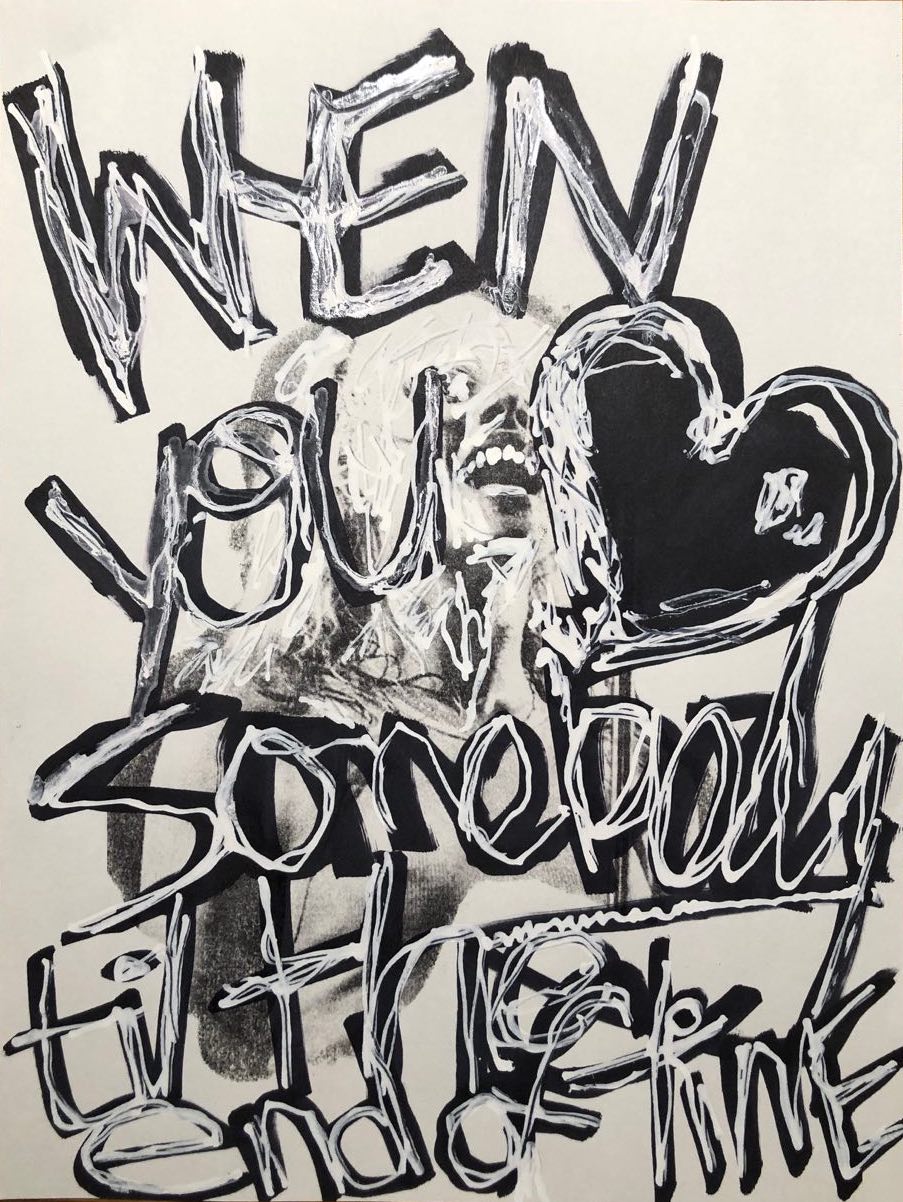 WHEN
you ♥
Somebody
til tHe
end OF tiME